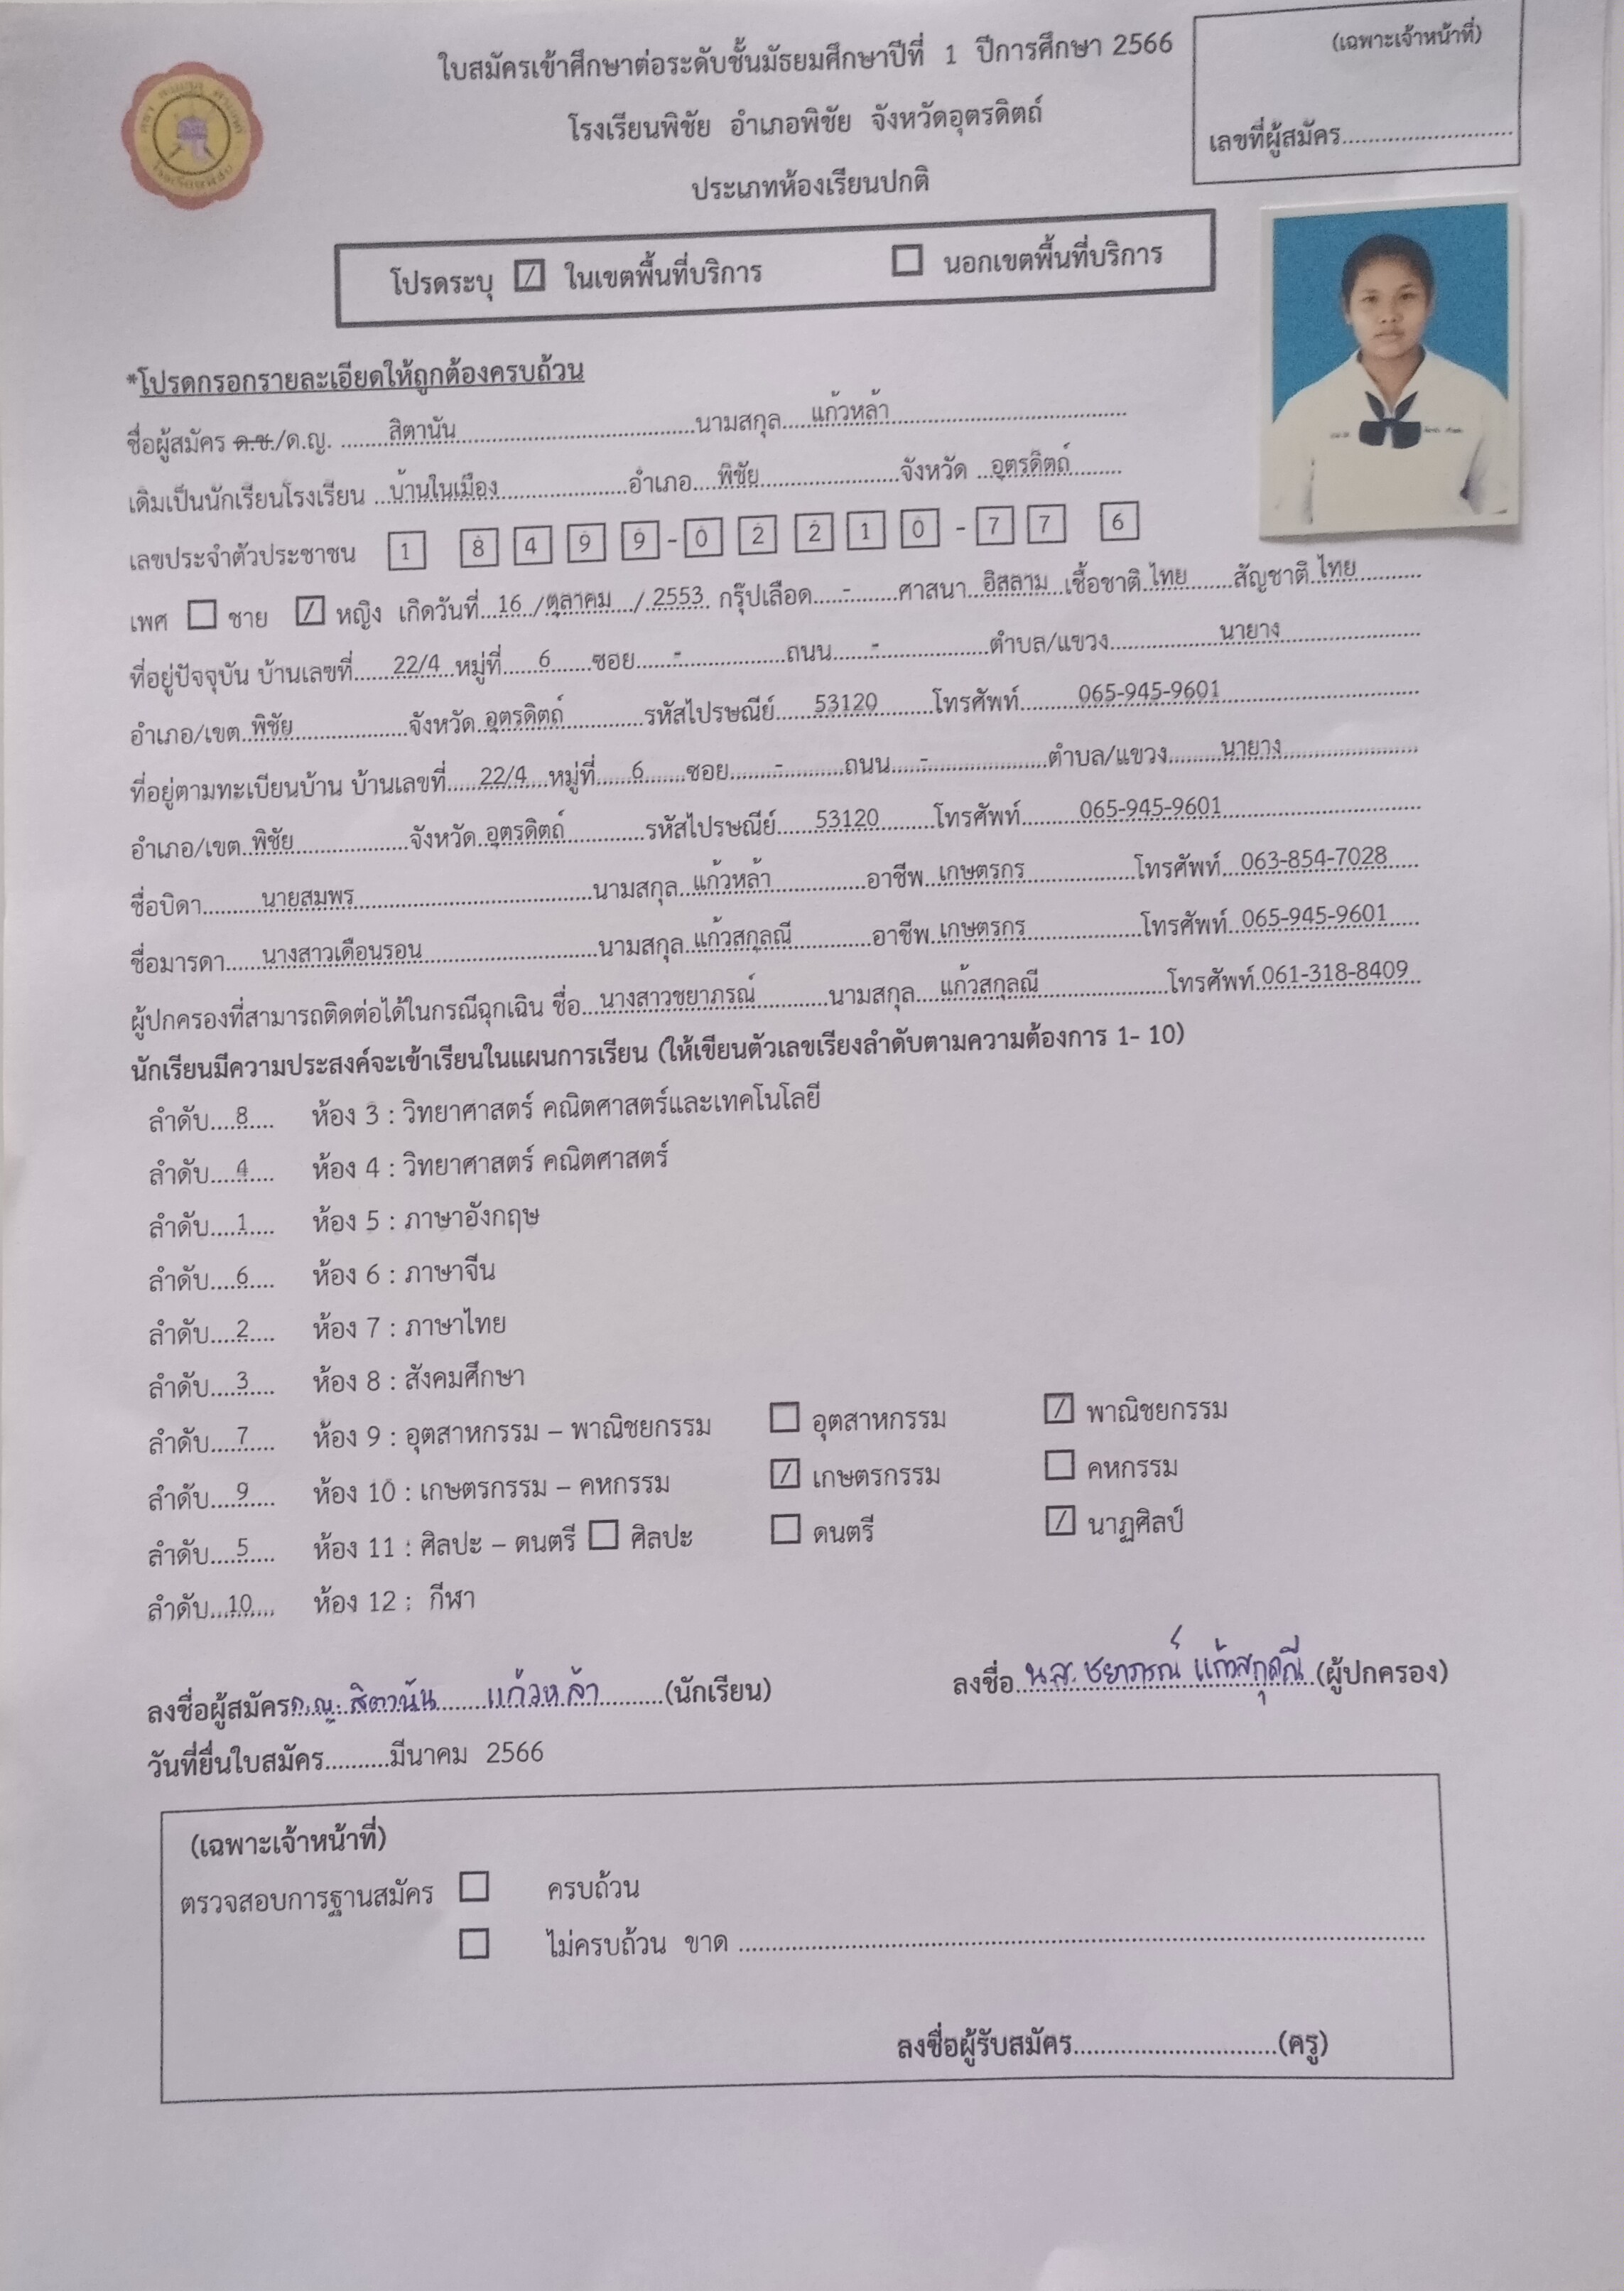 ใบสมัครเข้าศึกษาต่อระดับชั้นมัธยมศึกษาปีที่ 1 ปีการศึกษา 2566
(เฉพาะเจ้าหน้าที่)
โรงเรียนพิชัย อำเภอพิชัย จังหวัดอุตรดิตถ์
เลขที่ผู้สมัคร..........................
ประเภทห้องเรียนปกติ
โปรดระบุ [/] ในเขตพื้นที่บริการ [ ] นอกเขตพื้นที่บริการ
*โปรดกรอกรายละเอียดให้ถูกต้องครบถ้วน
ชื่อผู้สมัคร ด.ช./ด.ญ. ........สิตานัน........นามสกุล.....แก้วหล้า........
เดิมเป็นนักเรียนโรงเรียน ..บ้านในเมือง........อำเภอ....พิชัย........จังหวัด ..อุตรดิตถ์........
เลขประจำตัวประชาชน 1 8 4 9 9 - 0 2 2 1 0 - 7 7 6
เพศ [ ] ชาย [/] หญิง เกิดวันที่..16../ตุลาคม.../.2553. กรุ๊ปเลือด.....-........ศาสนา..อิสลาม..เชื้อชาติ.ไทย.......สัญชาติ.ไทย..........
ที่อยู่ปัจจุบัน บ้านเลขที่......22/4..หมู่ที่.....6......ซอย......-........ถนน......-........ตำบล/แขวง........นายาง........
อำเภอ/เขต..พิชัย........จังหวัด..อุตรดิตถ์........รหัสไปรษณีย์......53120........โทรศัพท์........065-945-9601........
ที่อยู่ตามทะเบียนบ้าน บ้านเลขที่.....22/4...หมู่ที่.....6......ซอย.......-........ถนน.....-........ตำบล/แขวง........นายาง........
อำเภอ/เขต..พิชัย........จังหวัด..อุตรดิตถ์........รหัสไปรษณีย์......53120........โทรศัพท์........065-945-9601........
ชื่อบิดา........นายสมพร........นามสกุล..แก้วหล้า........อาชีพ..เกษตรกร........โทรศัพท์...063-854-7028.....
ชื่อมารดา.....นางสาวเดือนรอน........นามสกุล..แก้วสกุลณี........อาชีพ..เกษตรกร........โทรศัพท์..065-945-9601.....
ผู้ปกครองที่สามารถติดต่อได้ในกรณีฉุกเฉิน ชื่อ...นางสาวชยาภรณ์........นามสกุล....แก้วสกุลณี........โทรศัพท์.061-318-8409..
นักเรียนมีความประสงค์จะเข้าเรียนในแผนการเรียน (ให้เขียนตัวเลขเรียงลำดับตามความต้องการ 1- 10)
ลำดับ....8..... ห้อง 3 : วิทยาศาสตร์ คณิตศาสตร์และเทคโนโลยี
ลำดับ....4..... ห้อง 4 : วิทยาศาสตร์ คณิตศาสตร์
ลำดับ....1..... ห้อง 5 : ภาษาอังกฤษ
ลำดับ....6..... ห้อง 6 : ภาษาจีน
ลำดับ....2..... ห้อง 7 : ภาษาไทย
ลำดับ....3..... ห้อง 8 : สังคมศึกษา
ลำดับ....7..... ห้อง 9 : อุตสาหกรรม – พาณิชยกรรม [ ] อุตสาหกรรม [/] พาณิชยกรรม
ลำดับ....9..... ห้อง 10 : เกษตรกรรม – คหกรรม [/] เกษตรกรรม [ ] คหกรรม
ลำดับ....5..... ห้อง 11 : ศิลปะ – ดนตรี [ ] ศิลปะ [ ] ดนตรี [/] นาฏศิลป์
ลำดับ...10.... ห้อง 12 : กีฬา
ลงชื่อผู้สมัครด.ญ. สิตานัน แก้วหล้า..........(นักเรียน) ลงชื่อ.น.ส. ชยาภรณ์ แก้วสกุลณี.(ผู้ปกครอง)
วันที่ยื่นใบสมัคร..........มีนาคม 2566
(เฉพาะเจ้าหน้าที่)
ตรวจสอบการฐานสมัคร [ ] ครบถ้วน
[ ] ไม่ครบถ้วน ขาด ........................................................
ลงชื่อผู้รับสมัคร..............................(ครู)